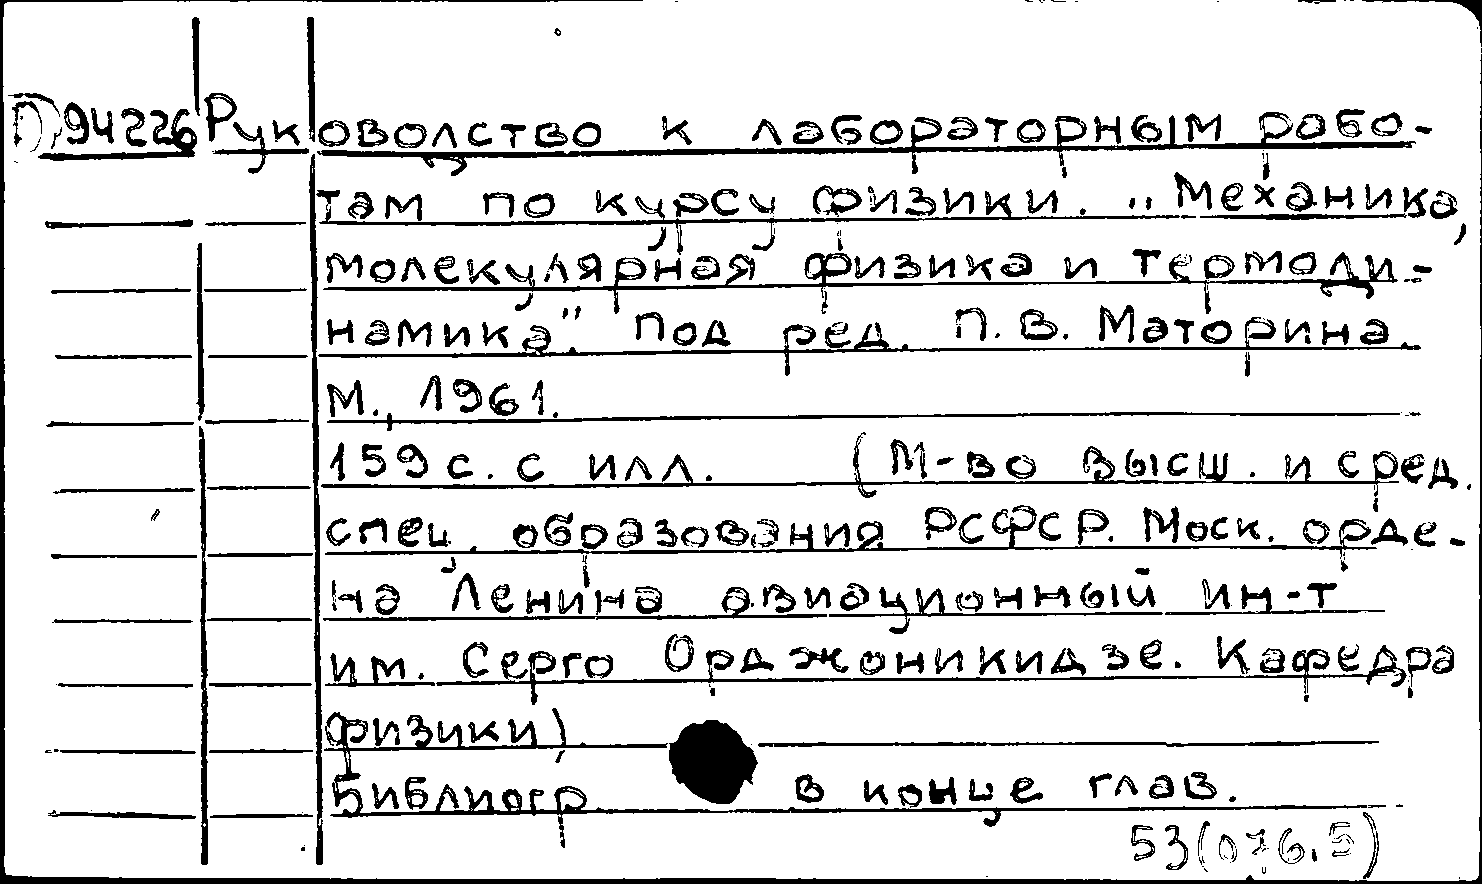 П 94226 Руководство к лабораторным рабо-
там по курсу физики. „Механика,
молекулярная физика и термоди-
намика". Под ред. П.В. Маторина.
М., 1961.
159 с. с илл. (М-во высш. и сред.
спец. образования РСФСР. Моск. орде-
на Ленина авиационный ин-т
им. Серго Орджоникидзе. Кафедра
физики)
Библиогр. в конце глав.
53(076.5)